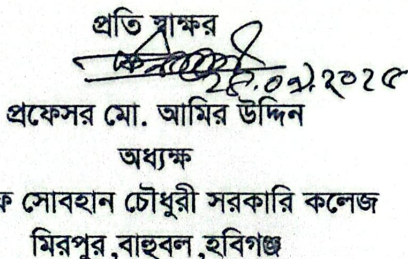 প্রতি স্বাক্ষর
প্রফেসর মো. আমির উদ্দিন
অধ্যক্ষ
সোবহান চৌধুরী সরকারি কলেজ
মিরপুর,বাহুবল,হবিগঞ্জ